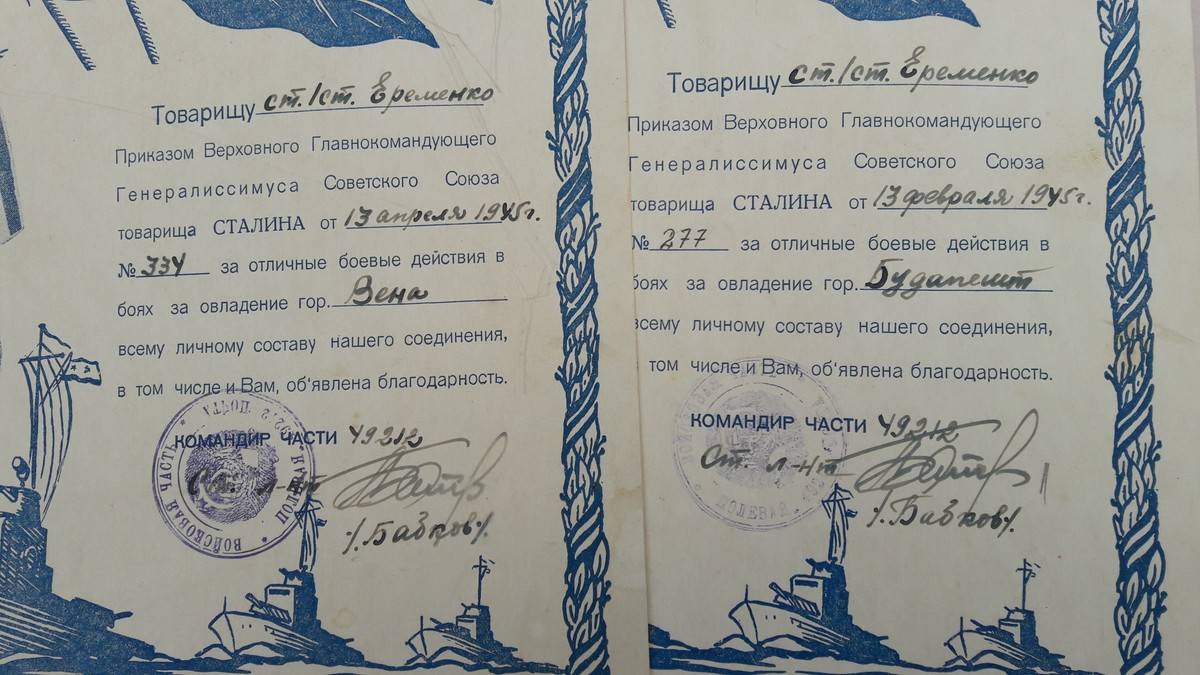 Товарищу ст./ст. Еременко
Приказом Верховного Главнокомандующего
Генералиссимуса Советского Союза
товарища СТАЛИНА от 13 апреля 1945г.
№ 334 за отличные боевые действия в
боях за овладение гор. Вена
всему личному составу нашего соединения,
в том числе и Вам, об'явлена благодарность.
КОМАНДИР ЧАСТИ 49212
ст. л-нт
/.Бабков./
ВОЙСКОВАЯ ЧАСТЬ * ПОЧТА
Товарищу ст./ст. Еременко
Приказом Верховного Главнокомандующего
Генералиссимуса Советского Союза
товарища СТАЛИНА от 13 февраля 1945г.
№ 277 за отличные боевые действия в
боях за овладение гор. Будапешт
всему личному составу нашего соединения,
том числе и Вам, об'явлена благодарность.
КОМАНДИР ЧАСТИ 49212
Ст. л-нт
/.Бабков./
ПОЛЕВАЯ